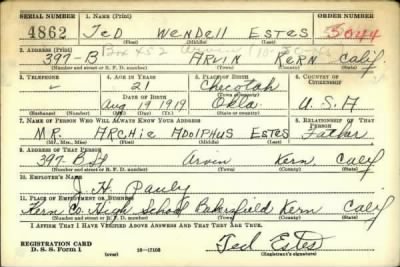 SERIAL NUMBER 1. NAME (Print) ORDER NUMBER
4862 TED WENDELL ESTES 5044
(First) (Middle) (Last)
2. ADDRESS (Print) Box 452 Arvin
397-B ARVIN KERN Calif
(Number and street or R. F. D. number) (Town) (County) (State)
3. TELEPHONE 4. AGE IN YEARS 5. PLACE OF BIRTH 6. COUNTRY OF CITIZENSHIP
21 Checotah
DATE OF BIRTH (Town or county)
Aug 19 1919 Okla. U.S.A
(Exchange) (Number) (Mo.) (Day) (Yr.) (State or country)
7. NAME OF PERSON WHO WILL ALWAYS KNOW YOUR ADDRESS 8. RELATIONSHIP OF THAT PERSON
MR. ARCHIE ADOLPHUS ESTES Father
(Mr., Mrs., Miss) (First) (Middle) (Last)
9. ADDRESS OF THAT PERSON
397 B St Arvin Kern Calif
(Number and street or R. F. D. number) (Town) (County) (State)
10. EMPLOYER'S NAME
J. H. Pauly
11. PLACE OF EMPLOYMENT OR BUSINESS
Kern Co. High School Bakersfield Kern Calif
(Number and street or R. F. D. number) (Town) (County) (State)
I AFFIRM THAT I HAVE VERIFIED ABOVE ANSWERS AND THAT THEY ARE TRUE.
REGISTRATION CARD
D. S. S. Form 1 (over) 16-17105 Ted Estes
(Registrant's signature)